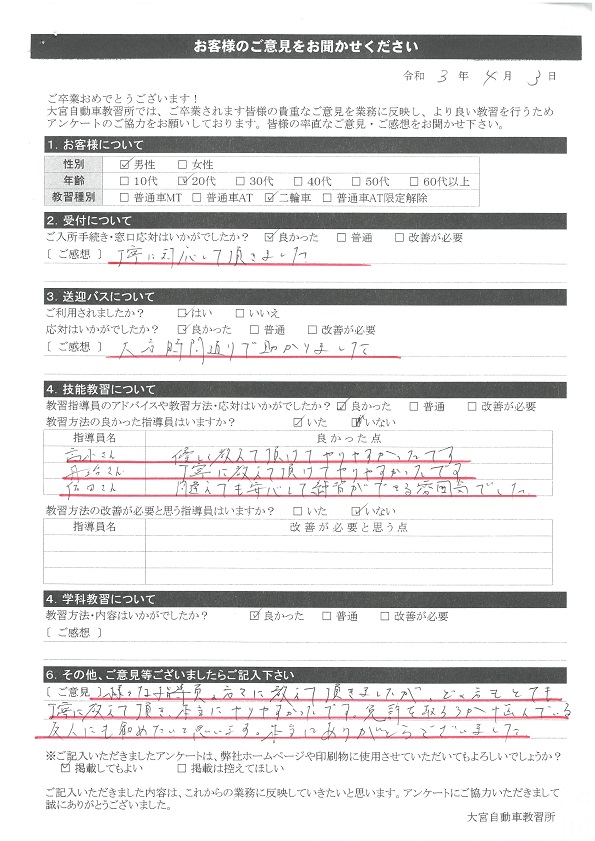 お客様のご意見をお聞かせください
令和 3 年 4 月 3 日
ご卒業おめでとうございます！
大宮自動車教習所では、ご卒業されます皆様の貴重なご意見を業務に反映し、より良い教習を行うため
アンケートのご協力をお願いしております。皆様の率直なご意見・ご感想をお聞かせ下さい。
1．お客様について
性別 ☑男性 □女性
年齢 □10代 ☑20代 □30代 □40代 □50代 □60代以上
教習種別 □普通車MT □普通車AT ☑二輪車 □普通車AT限定解除
2．受付について
ご入所手続き・窓口対応はいかがでしたか？ ☑良かった □普通 □改善が必要
［ご感想］ 丁寧に対応して頂きました
3．送迎バスについて
ご利用されましたか？ ☑はい □いいえ
応対はいかがでしたか？ ☑良かった □普通 □改善が必要
［ご感想］ 大方時間通りで助かりました
4．技能教習について
教習指導員のアドバイスや教習方法・応対はいかがでしたか？ ☑良かった □普通 □改善が必要
教習方法の良かった指導員はいますか？ ☑いた □いない
指導員名 良かった点
さん 優しく教えて頂けてやりやすかったです
さん 丁寧に教えて頂けてやりやすかったです
さん 間違えても安心して練習ができる雰囲気でした
教習方法の改善が必要と思う指導員はいますか？ □いた ☑いない
指導員名 改善が必要と思う点
4．学科教習について
教習方法・内容はいかがでしたか？ ☑良かった □普通 □改善が必要
［ご感想］
6．その他、ご意見等ございましたらご記入下さい
［ご意見］ 様々な指導員の方々に教えて頂きましたが、どの方もとても
丁寧に教えて頂き、本当にやりやすかったです。免許を取ろうか悩んでいる
友人にも勧めたいと思います。本当にありがとうございました
※ご記入いただきましたアンケートは、弊社ホームページや印刷物に使用させていただいてもよろしいでしょうか？
☑掲載してもよい □掲載は控えてほしい
ご記入いただきました内容は、これからの業務に反映していきたいと思います。アンケートにご協力いただきまして
誠にありがとうございました。
大宮自動車教習所